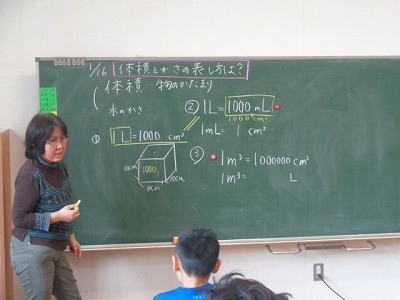 1/16 体積とかさの表し方は?
体積 物のかたまり
水のかさ
① 1L=1000 cm³
10cm 1000 10cm
10cm
② 1L=1000mL
1000cm³
1mL= 1 cm³
③ 1m³=1000000 cm³
1m³= L